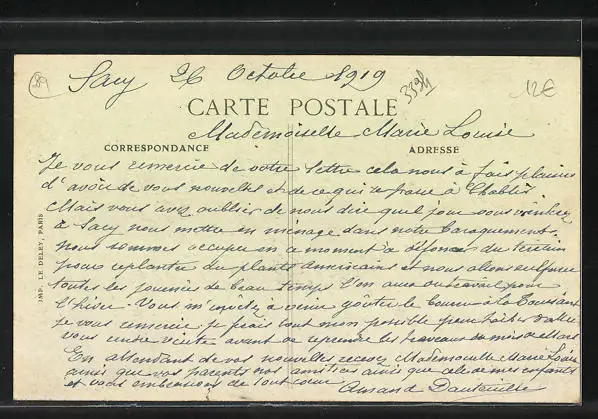 89
Sacy 26 Octobre 1919
3394
12€
CARTE POSTALE
Mademoiselle Marie Louise
CORRESPONDANCE
ADRESSE
Je vous remercie de votre lettre cela nous à fais plaisir
d'avoir de vous nouvelles et de ce qui ce passe à Chablis
Mais vous avez oublier de nous dire quel jour vous viendrez
à Sacy nous mettre en ménage dans notre baraquement.
Nous sommes occuper en ce moment a défoncer du terrain
pour replanter du plants américains et nous allons
toutes les journées de beau temps l'on aura pour
l'hiver. Vous m'invitez à venir goûter le bourru à la Toussaint
je vous remercie je ferais tout mon possible pour
vous rendre visite avant de reprendre les travaux du mois de Mars
En attendant de vos nouvelles recevez Mademoiselle Marie Louise
ainsi que vos parents nos amitiés ainsi que celle de mes enfants
et vous embrassons de tout cœur
Amand
IMP. LE DELEY, PARIS